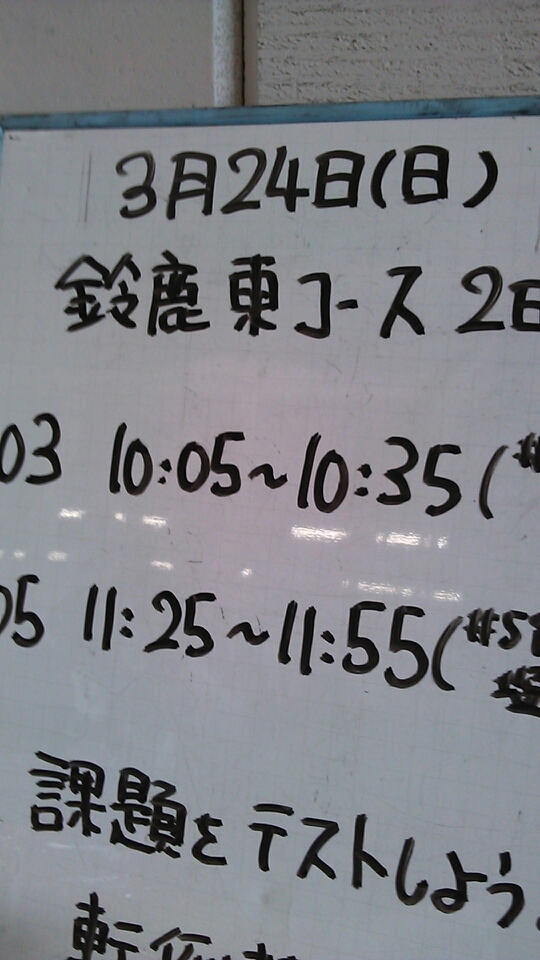 3月24日(日)
鈴鹿東コース 2日
03 10:05~10:35(
05 11:25~11:55(#58
課題をテストしよう。